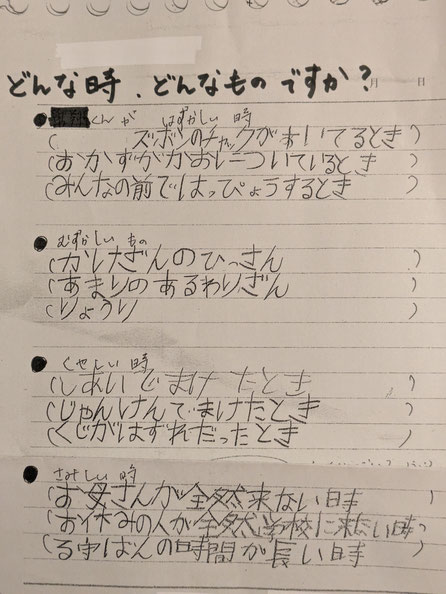 どんな時、どんなものですか?
月 日
くんが はずかしい 時
( ズボンのチャックがあいてるとき )
(おかずがかおについているとき )
(みんなの前ではっぴょうするとき )
むずかしい もの
(かけざんのひっさん )
(あまりのあるわりざん )
(りょうり )
くやしい 時
(しあいでまけたとき )
(じゃんけんでまけたとき )
(くじがはずれだったとき )
さみしい 時
(お母さんが全然来ない日時 )
(お休みの人が全然学校に来ない時)
(る守ばんの時間が長い時 )